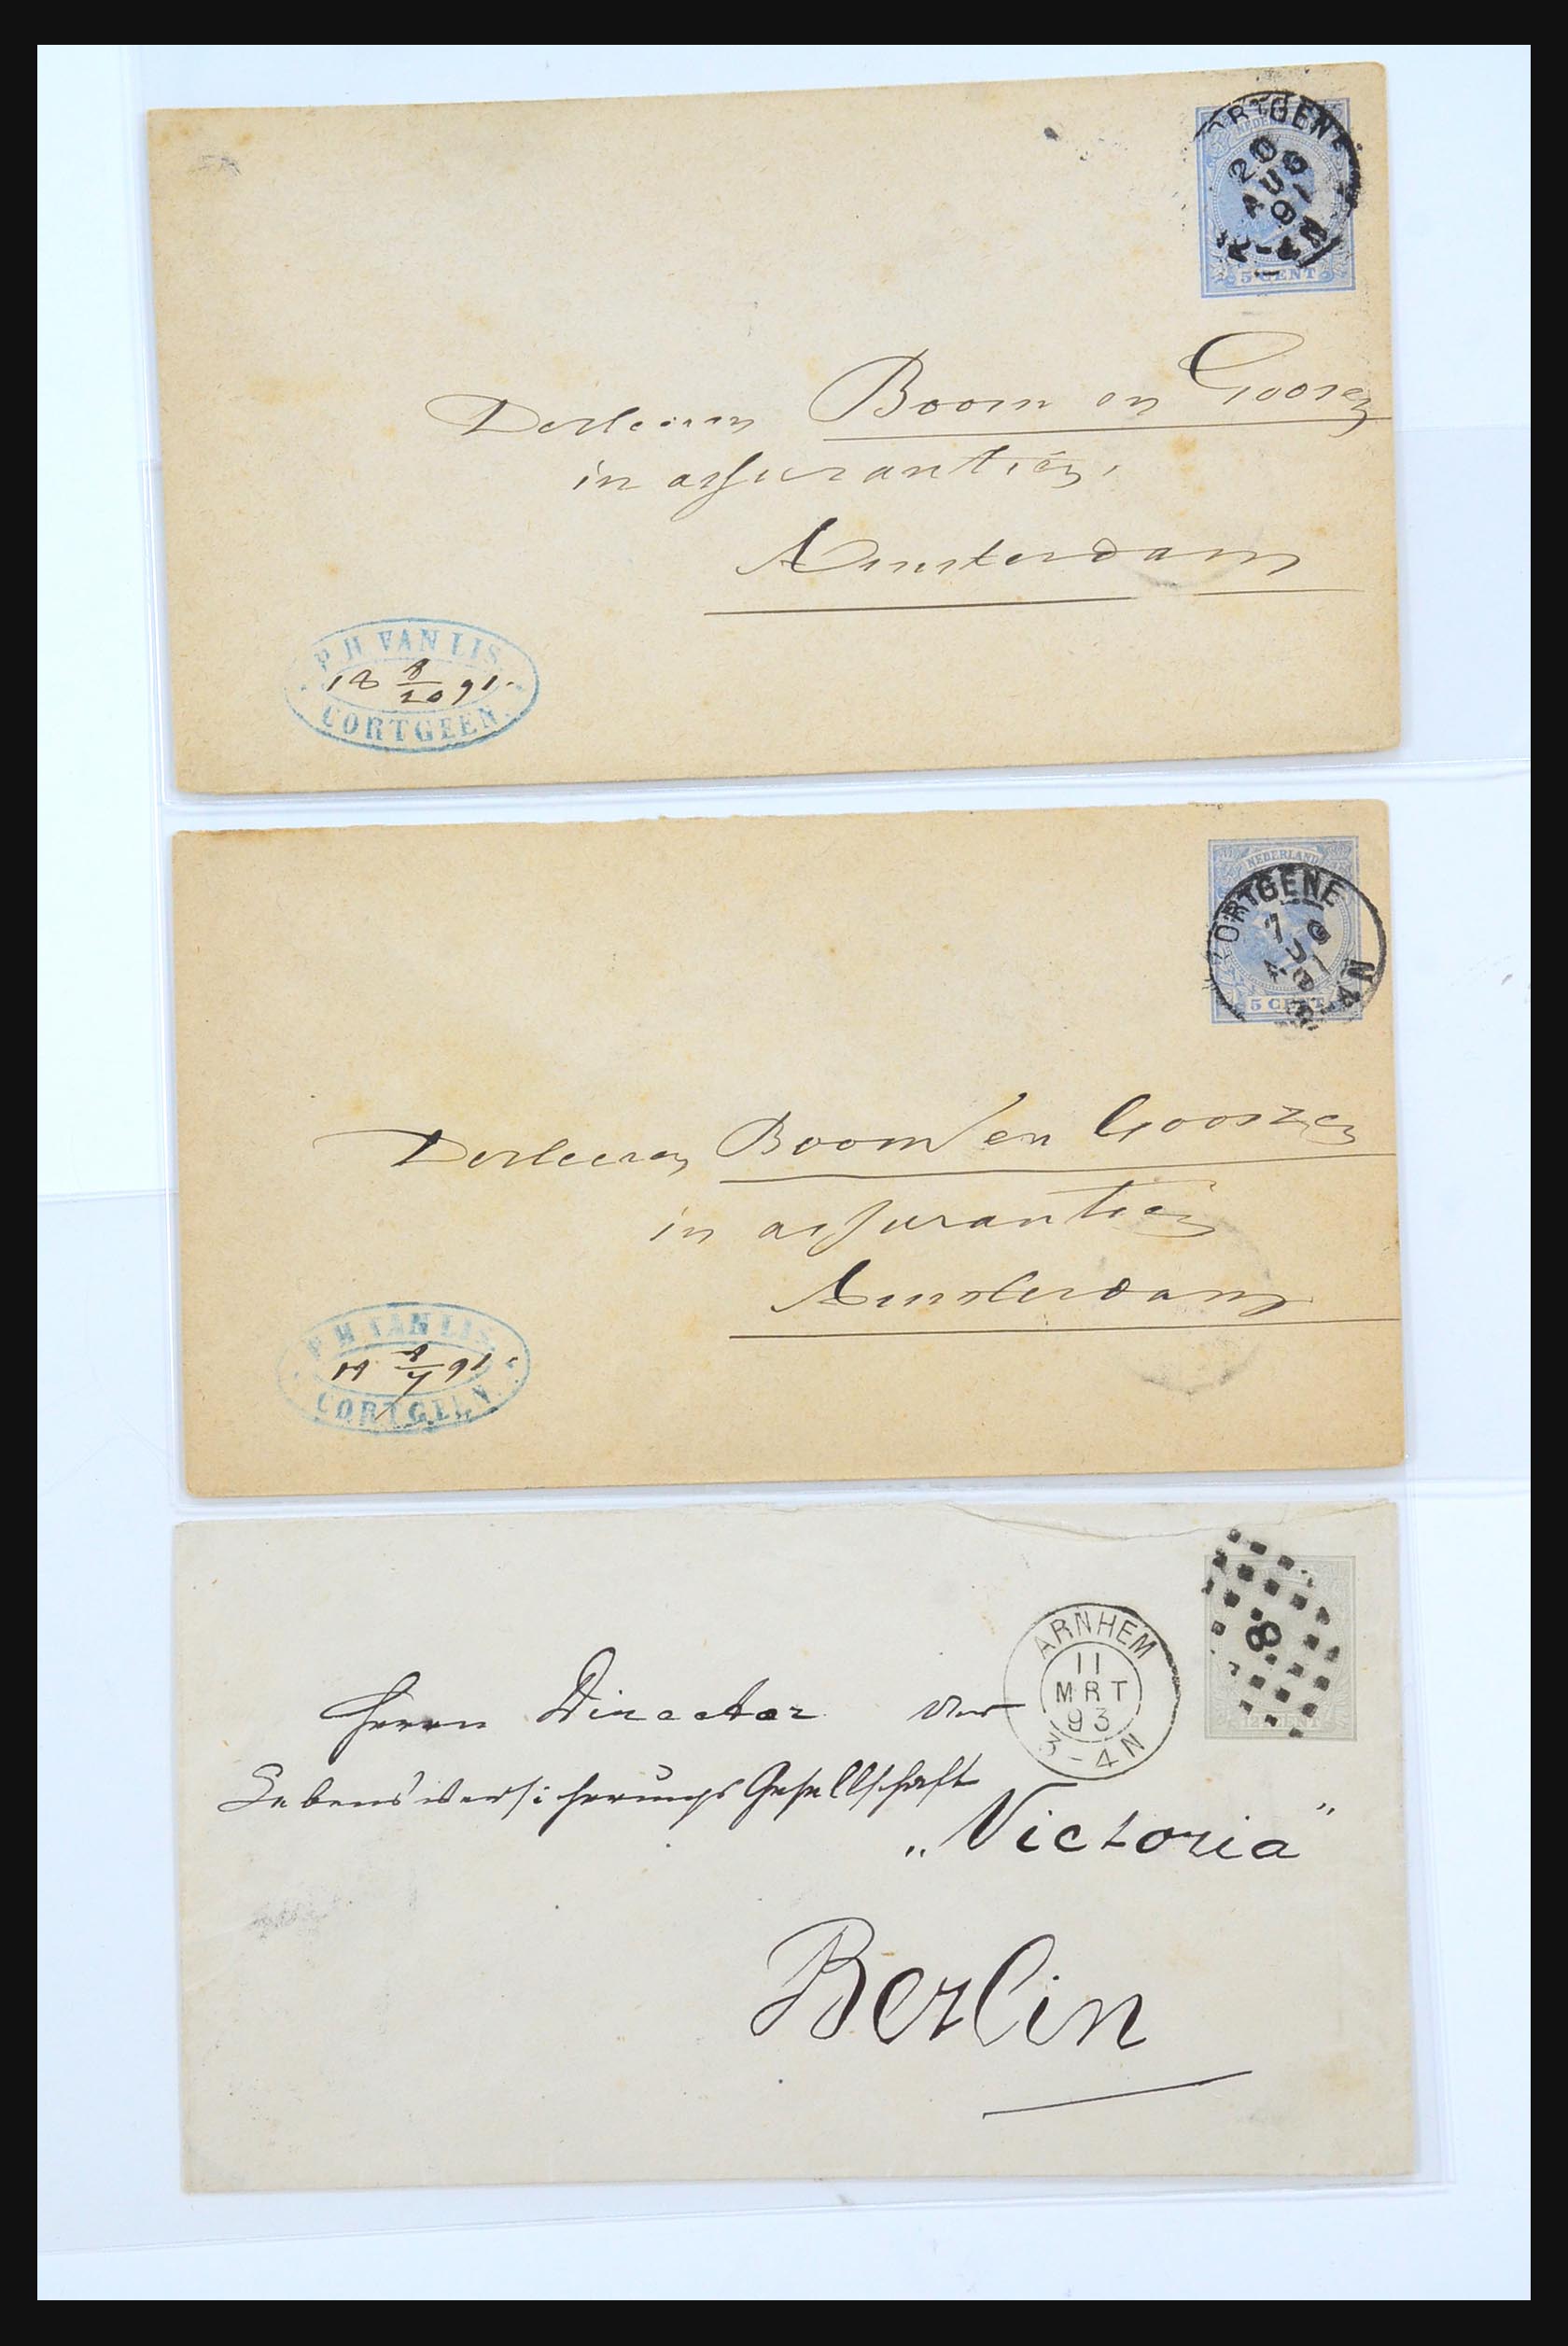 KORTGENE
20
AUG
91
12-4N
5 CENT
De Heeren Boom en Goosen
in assurantiën,
Amsterdam
P H VAN LIS
18 8/20 91.
CORTGEEN.
NEDERLAND
KORTGENE
7
AUG
91
4 N
5 CENT
De Heeren Boom en Goossen
in assurantiën
Amsterdam
P H VAN LIS
8/7 91
CORTGEEN
8
ARNHEM
11
MRT
93
3-4N
Herrn Director der
Lebensversicherungs Gesellschaft
„Victoria”
Berlin